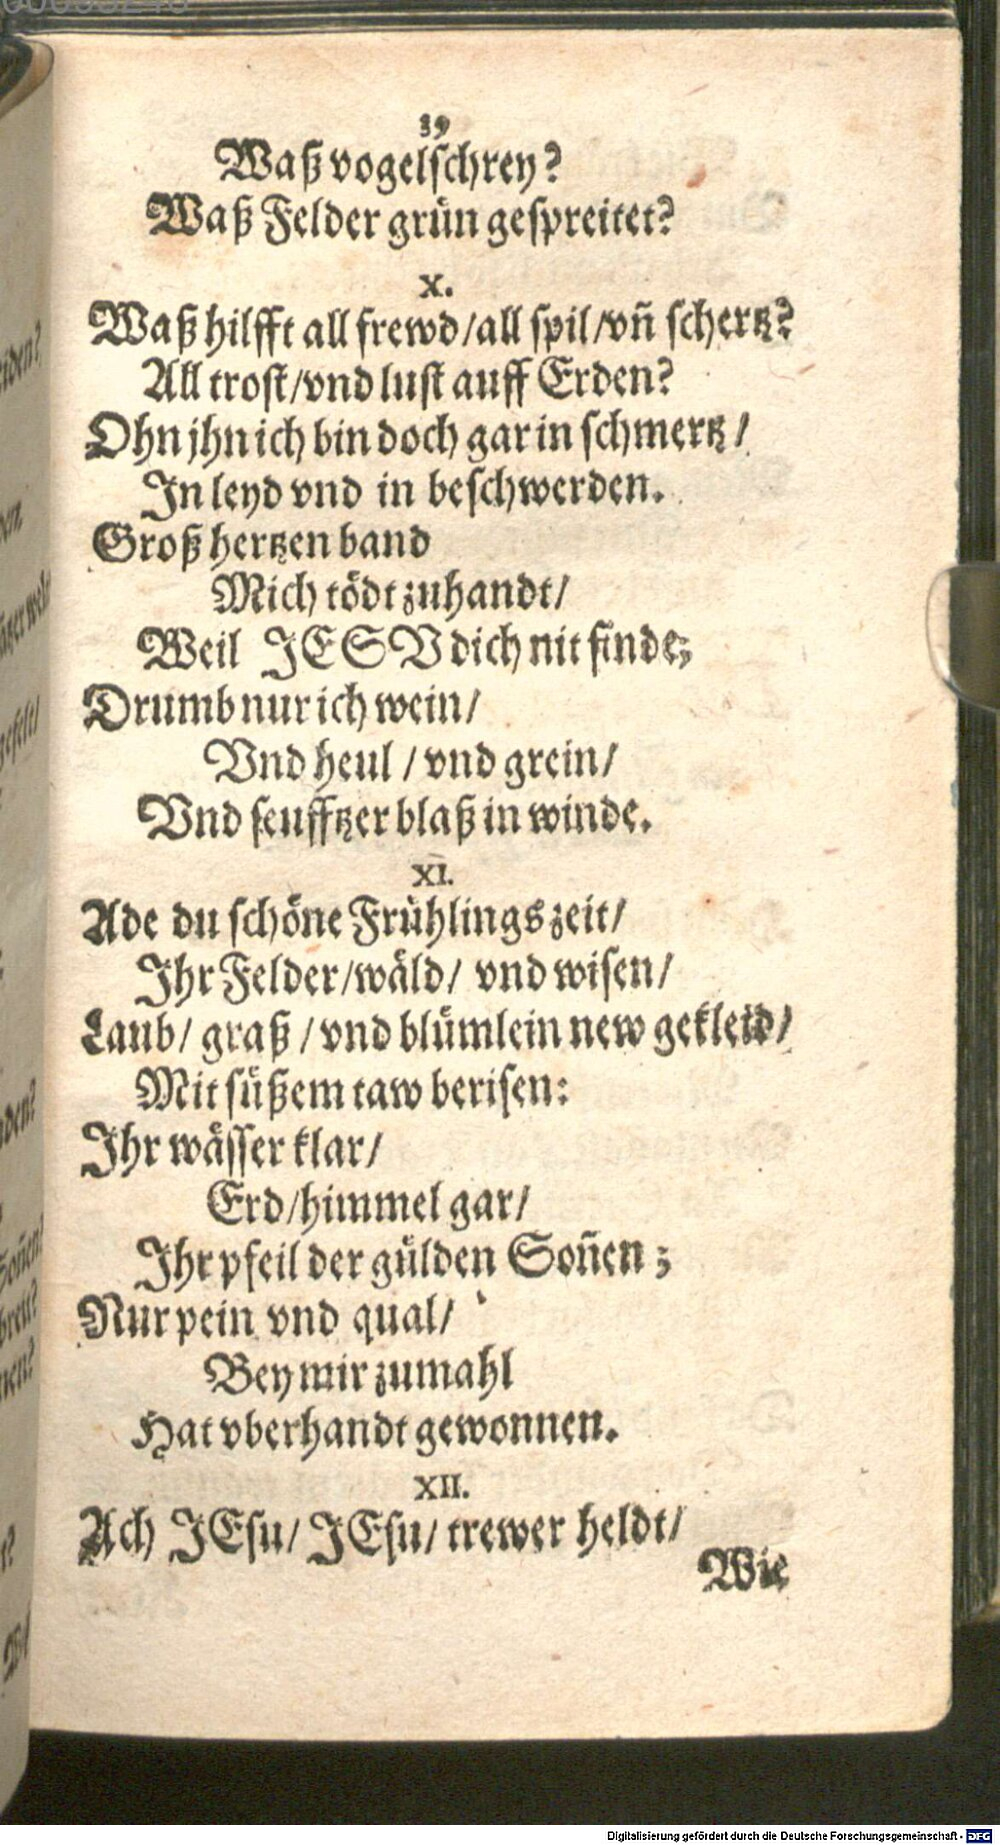 39
Waß vogelschrey?
Waß Felder grün gespreitet?
X.
Waß hilfft all frewd/all spil/vñ schertz?
All trost/vnd lust auff Erden?
Ohn jhn ich bin doch gar in schmertz/
In leyd vnd in beschwerden.
Groß hertzen band
Mich tödt zuhandt/
Weil JESV dich nit finde;
Drumb nur ich wein/
Vnd heul / vnd grein/
Vnd seufftzer blaß in winde.
XI.
Ade du schöne Frühlingszeit/
Ihr Felder/wäld/ vnd wisen/
Laub/ graß / vnd blümlein new gekleid/
Mit süßem taw berisen:
Ihr wässer klar/
Erd/himmel gar/
Ihr pfeil der gülden Soñen;
Nur pein vnd qual/
Bey mir zumahl
Hat vberhandt gewonnen.
XII.
Ach JEsu/ JEsu/ trewer heldt/
Wie
Digitalisierung gefördert durch die Deutsche Forschungsgemeinschaft - DFG